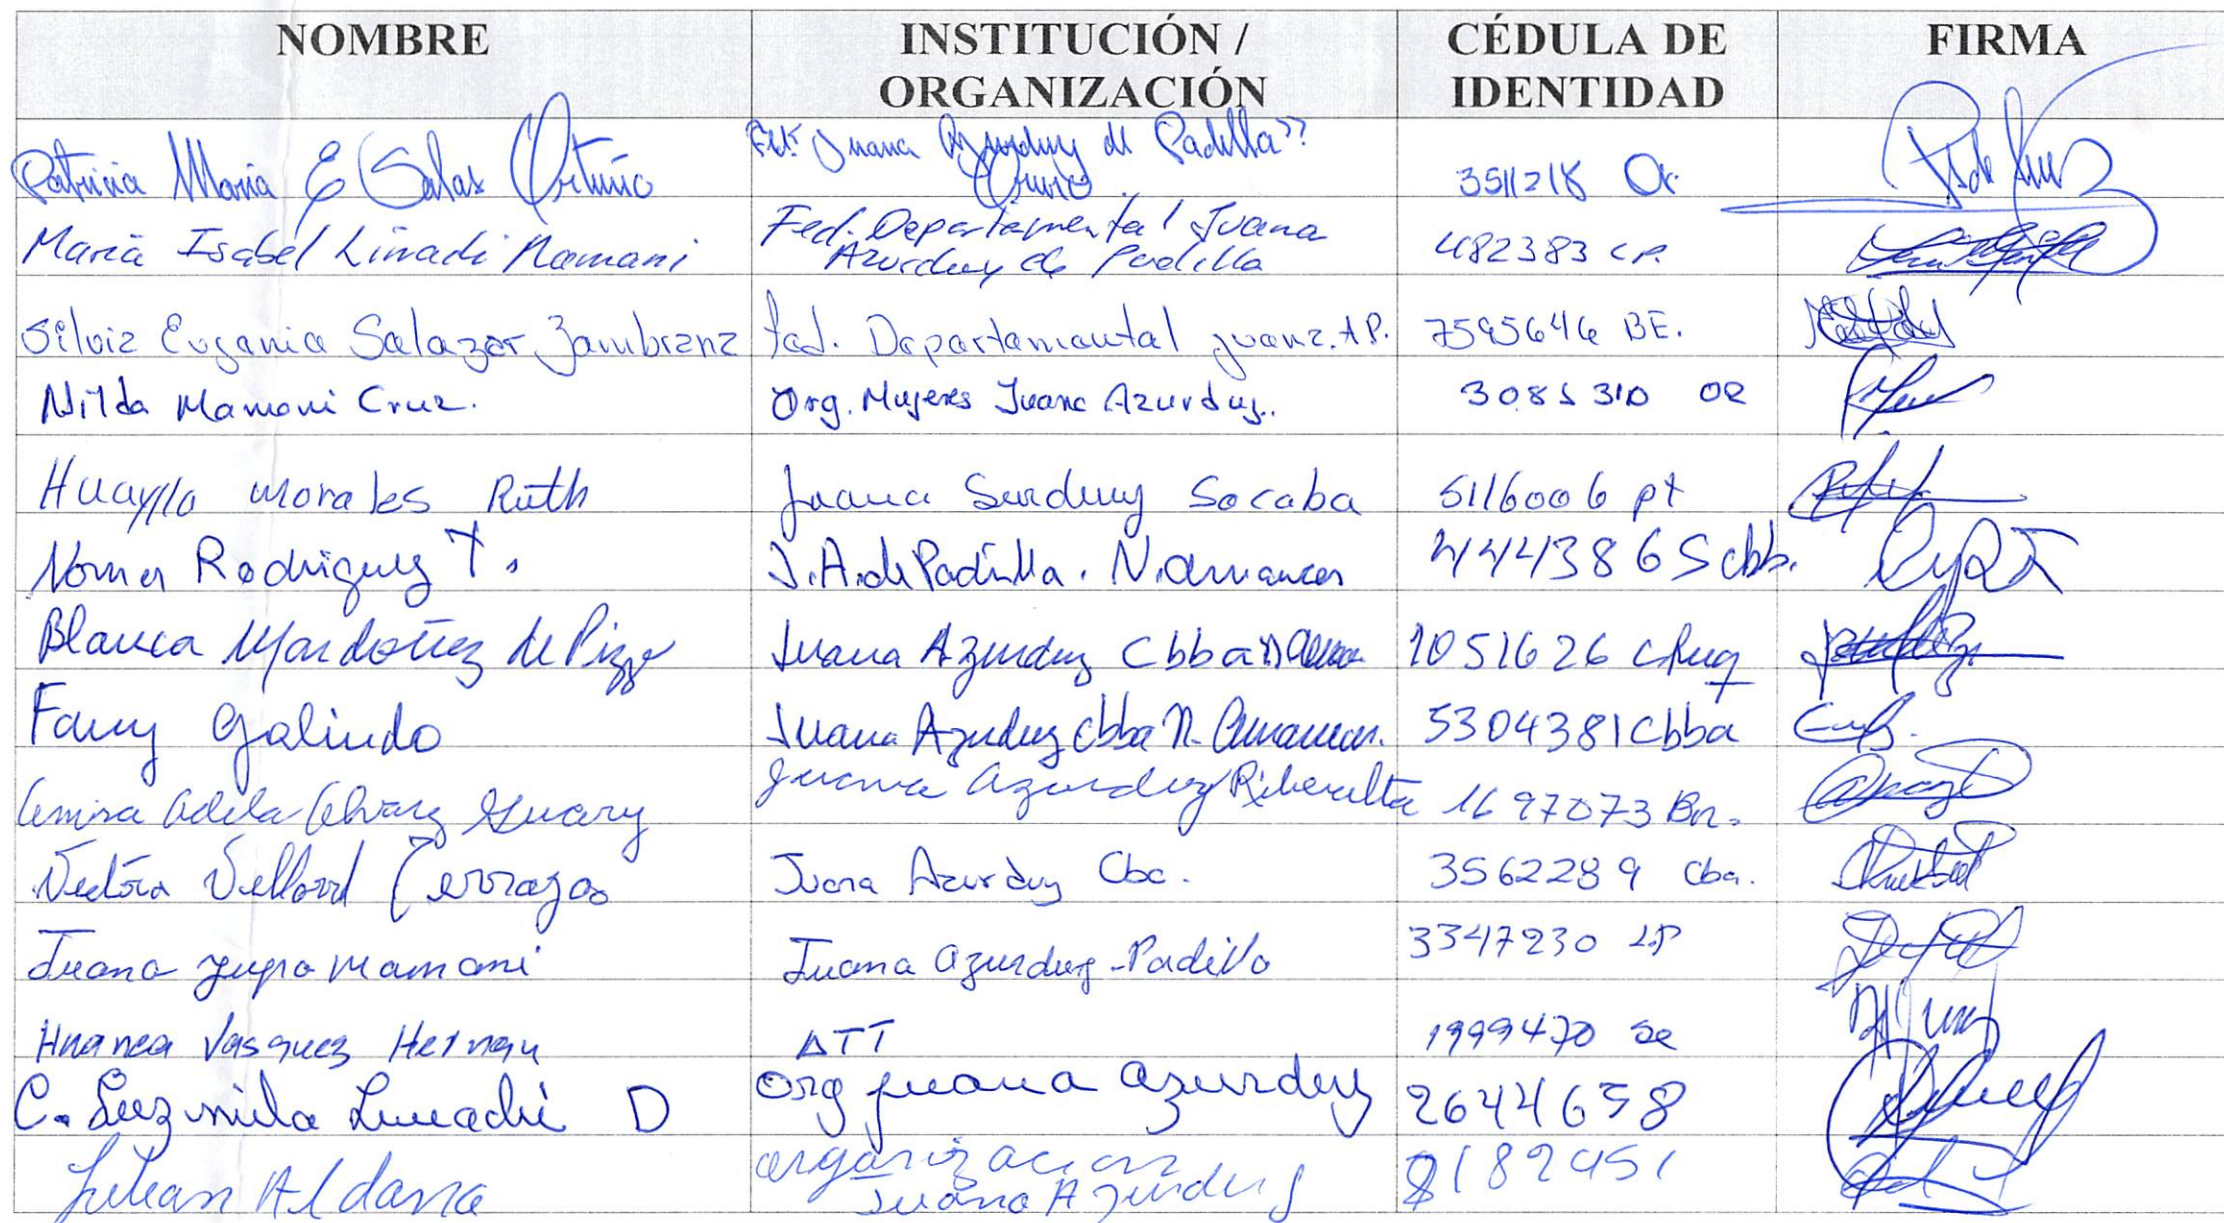 NOMBRE INSTITUCIÓN / ORGANIZACIÓN CÉDULA DE IDENTIDAD FIRMA
Patricia Maria E Salas Ortuño Fed. "Juana Azurduy de Padilla" Oruro. 3511218 Or.
Maria Isabel Linadi Mamani Fed. Departamental Juana Azurduy de Padilla 482383 LP.
Silvia Eugenia Salazar Zambrana Fed. Departamental Juana. A.P. 7595646 BE.
Nilda Mamani Cruz. Org. Mujeres Juana Azurduy. 3085310 OR
Huayllo Morales Ruth Juana Surduy Socaba 5116006 pt
Norma Rodriguez T. J.A. de Padilla. N. 4443865 cbb.
Blanca de Juana Azurduy Cbba 1051626 Chuq
Fany Galindo Juana Azurduy cbba N. 5304381 Cbba
Adela Juana Azurduy Riberalta 1697073 Bn.
Juana Azurduy Cba. 3562289 Cba.
Juana Mamani Juana Azurduy-Padilla 3347230 LP
Huanca Vasquez Hernan ATT 1999470 SC
C. Luzmila D Org Juana Azurduy 2644658
Julian Aldana organizacion Juana Azurduy 8182951